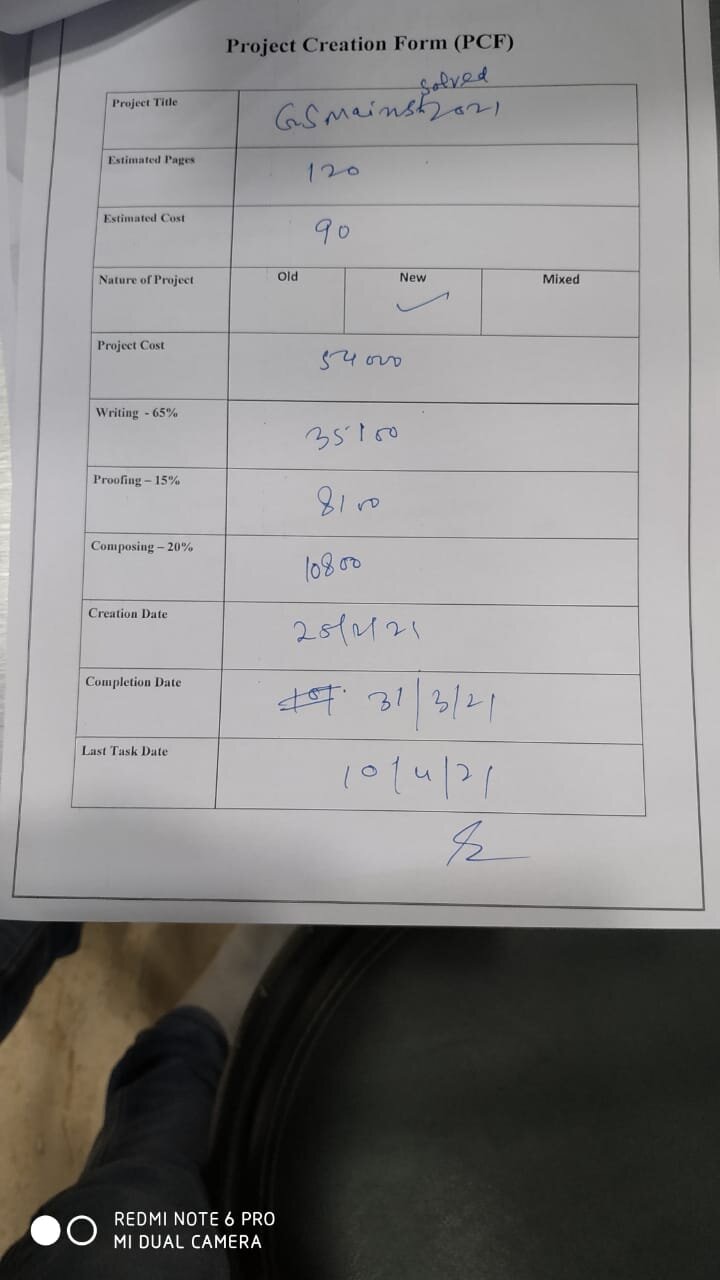 Project Creation Form (PCF)
Project Title
solved
GS Mains 2021
Estimated Pages
120
Estimated Cost
90
Nature of Project
Old
New
Mixed
Project Cost
54000
Writing - 65%
35100
Proofing – 15%
8100
Composing – 20%
10800
Creation Date
Completion Date
31/3/21
Last Task Date
10/4/21
REDMI NOTE 6 PRO
MI DUAL CAMERA